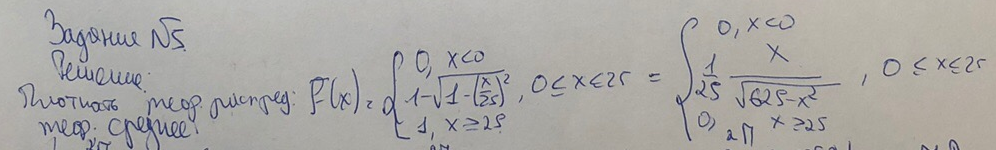 Задание №5.
Решение:
Плотность теор. распред: F(x) = { 0, x<0; 1-√(1-(x/25)²), 0≤x≤25; 1, x≥25 = { 0, x<0; 1/25 x/√(625-x²), 0≤x≤25; 0, x≥25
теор. среднее: